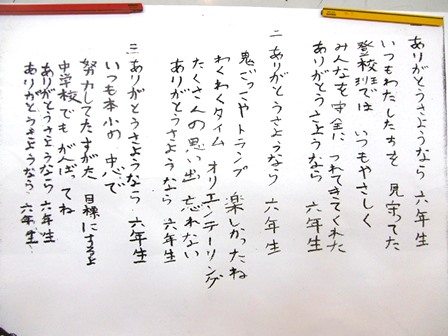 ありがとうさようなら 六年生
いつもわたしたちを 見守ってた
登校班では いつもやさしく
みんなを安全に つれてきてくれた
ありがとうさようなら 六年生
二 ありがとうさようなら 六年生
鬼ごっこやトランプ 楽しかったね
わくわくタイム オリエンテーリング
たくさんの思い出 忘れない
ありがとうさようなら 六年生
三 ありがとうさようなら 六年生
いつも本小の 中心で
努力してたすがた 目標にするよ
中学校でも がんばってね
ありがとうさようなら 六年生
ありがとうさようなら 六年生